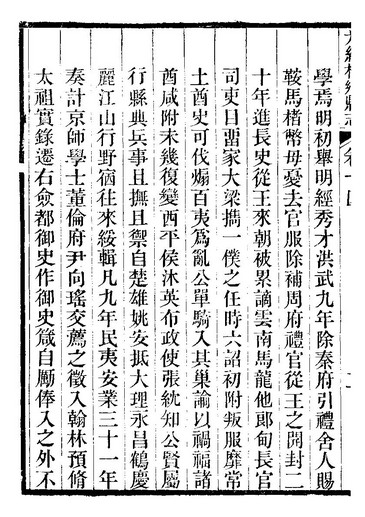 學焉明初舉明經秀才洪武九年除秦府引禮舍人賜
鞍馬楮幣毋憂去官服除補周府禮官從王之開封二
十年進長史從王來朝被累謫雲南馬龍他郎甸長官
司吏目畱家大梁擕一僕之任時六詔初附叛服靡常
土酋史可伐煽百夷爲亂公單騎入其巢諭以禍福諸
酋咸附未幾復變西平侯沐英布政使張紞知公賢屬
行縣典兵事且撫且禦自楚雄姚安抵大理永昌鶴慶
麗江山行野宿往來綏輯凡九年民夷安業三十一年
奏計京師學士董倫府尹向瑤交薦之徵入翰林預脩
太祖實錄遷右僉都御史作御史箴自勵俸入之外不
卷十四